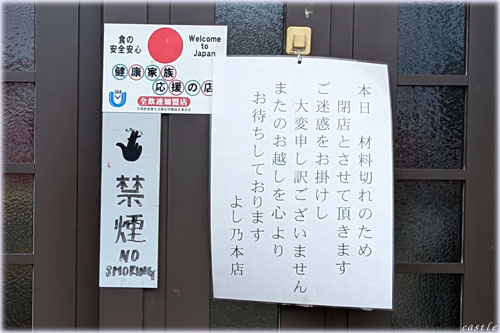 食の
安全安心
Welcome
to
Japan
健康家族
応援の店
全飲連加盟店
禁煙
NO
SMOKING
本日 材料切れのため
閉店とさせて頂きます
ご迷惑をお掛けし
大変申し訳ございません
またのお越しを心より
お待ちしております
よし乃本店
castle